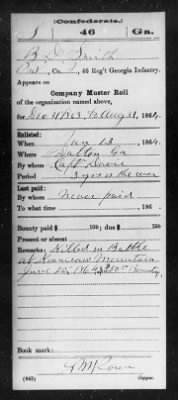 (Confederate.)
S 46 Ga.
Smith
Co. , 46 Reg't Georgia Infantry.
Appears on
Company Muster Roll
of the organization named above,
for Dec 31 1863, to Aug 31, 1864.
Enlisted:
When Jan 13, 1864.
Where Dalton Ga
By whom Capt
Period 3 yrs or the war
Last paid:
By whom Never paid
To what time , 186 .
Bounty paid $ 50 ; due $
Present or absent
Remarks: Killed in Battle
at Kennesaw Mountain
June 1864 $50 Bounty
Book mark:
(642) Copyist.